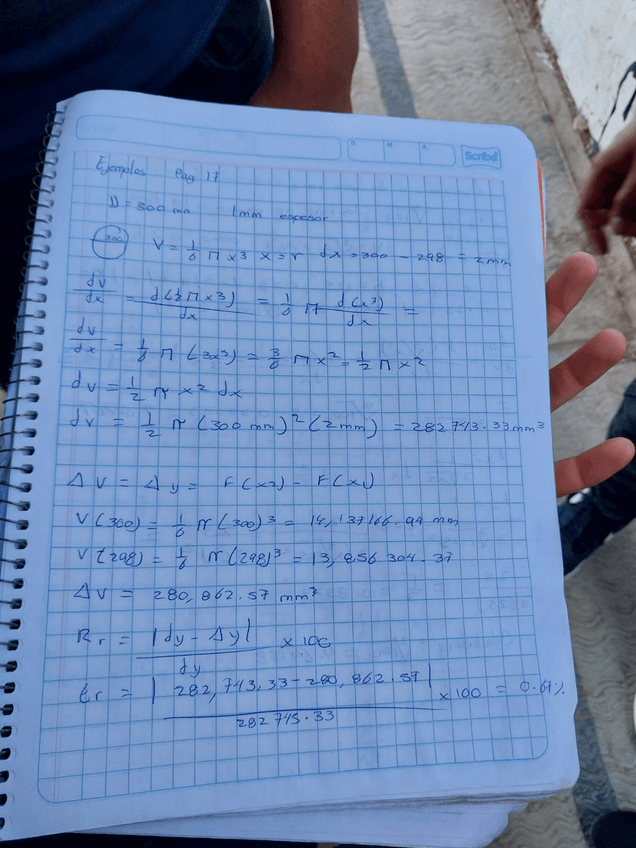 D M A
Scribe
Ejemplos Pag 17
D = 300 mm 1mm espesor
300 V = 1/6 π x3 x = r dx = 300 - 298 = 2mm
dv/dx = d(1/6 π x3)/dx = 1/6 π d(x3)/dx =
dv/dx = 1/6 π (3x2) = 3/6 π x2 = 1/2 π x2
dv = 1/2 π x2 dx
dv = 1/2 π (300 mm)2 (2mm) = 282743.33mm3
ΔV = Δy = F(x2) - F(x1)
V(300) = 1/6 π (300)3 = 14,137166.94 mm
V(298) = 1/6 π (298)3 = 13,856304.37
ΔV = 280,862.57 mm3
Rr = |dy - Δy|/dy x 100
Er = |282,743.33 - 280,862.57|/282745.33 x100 = 0.67%